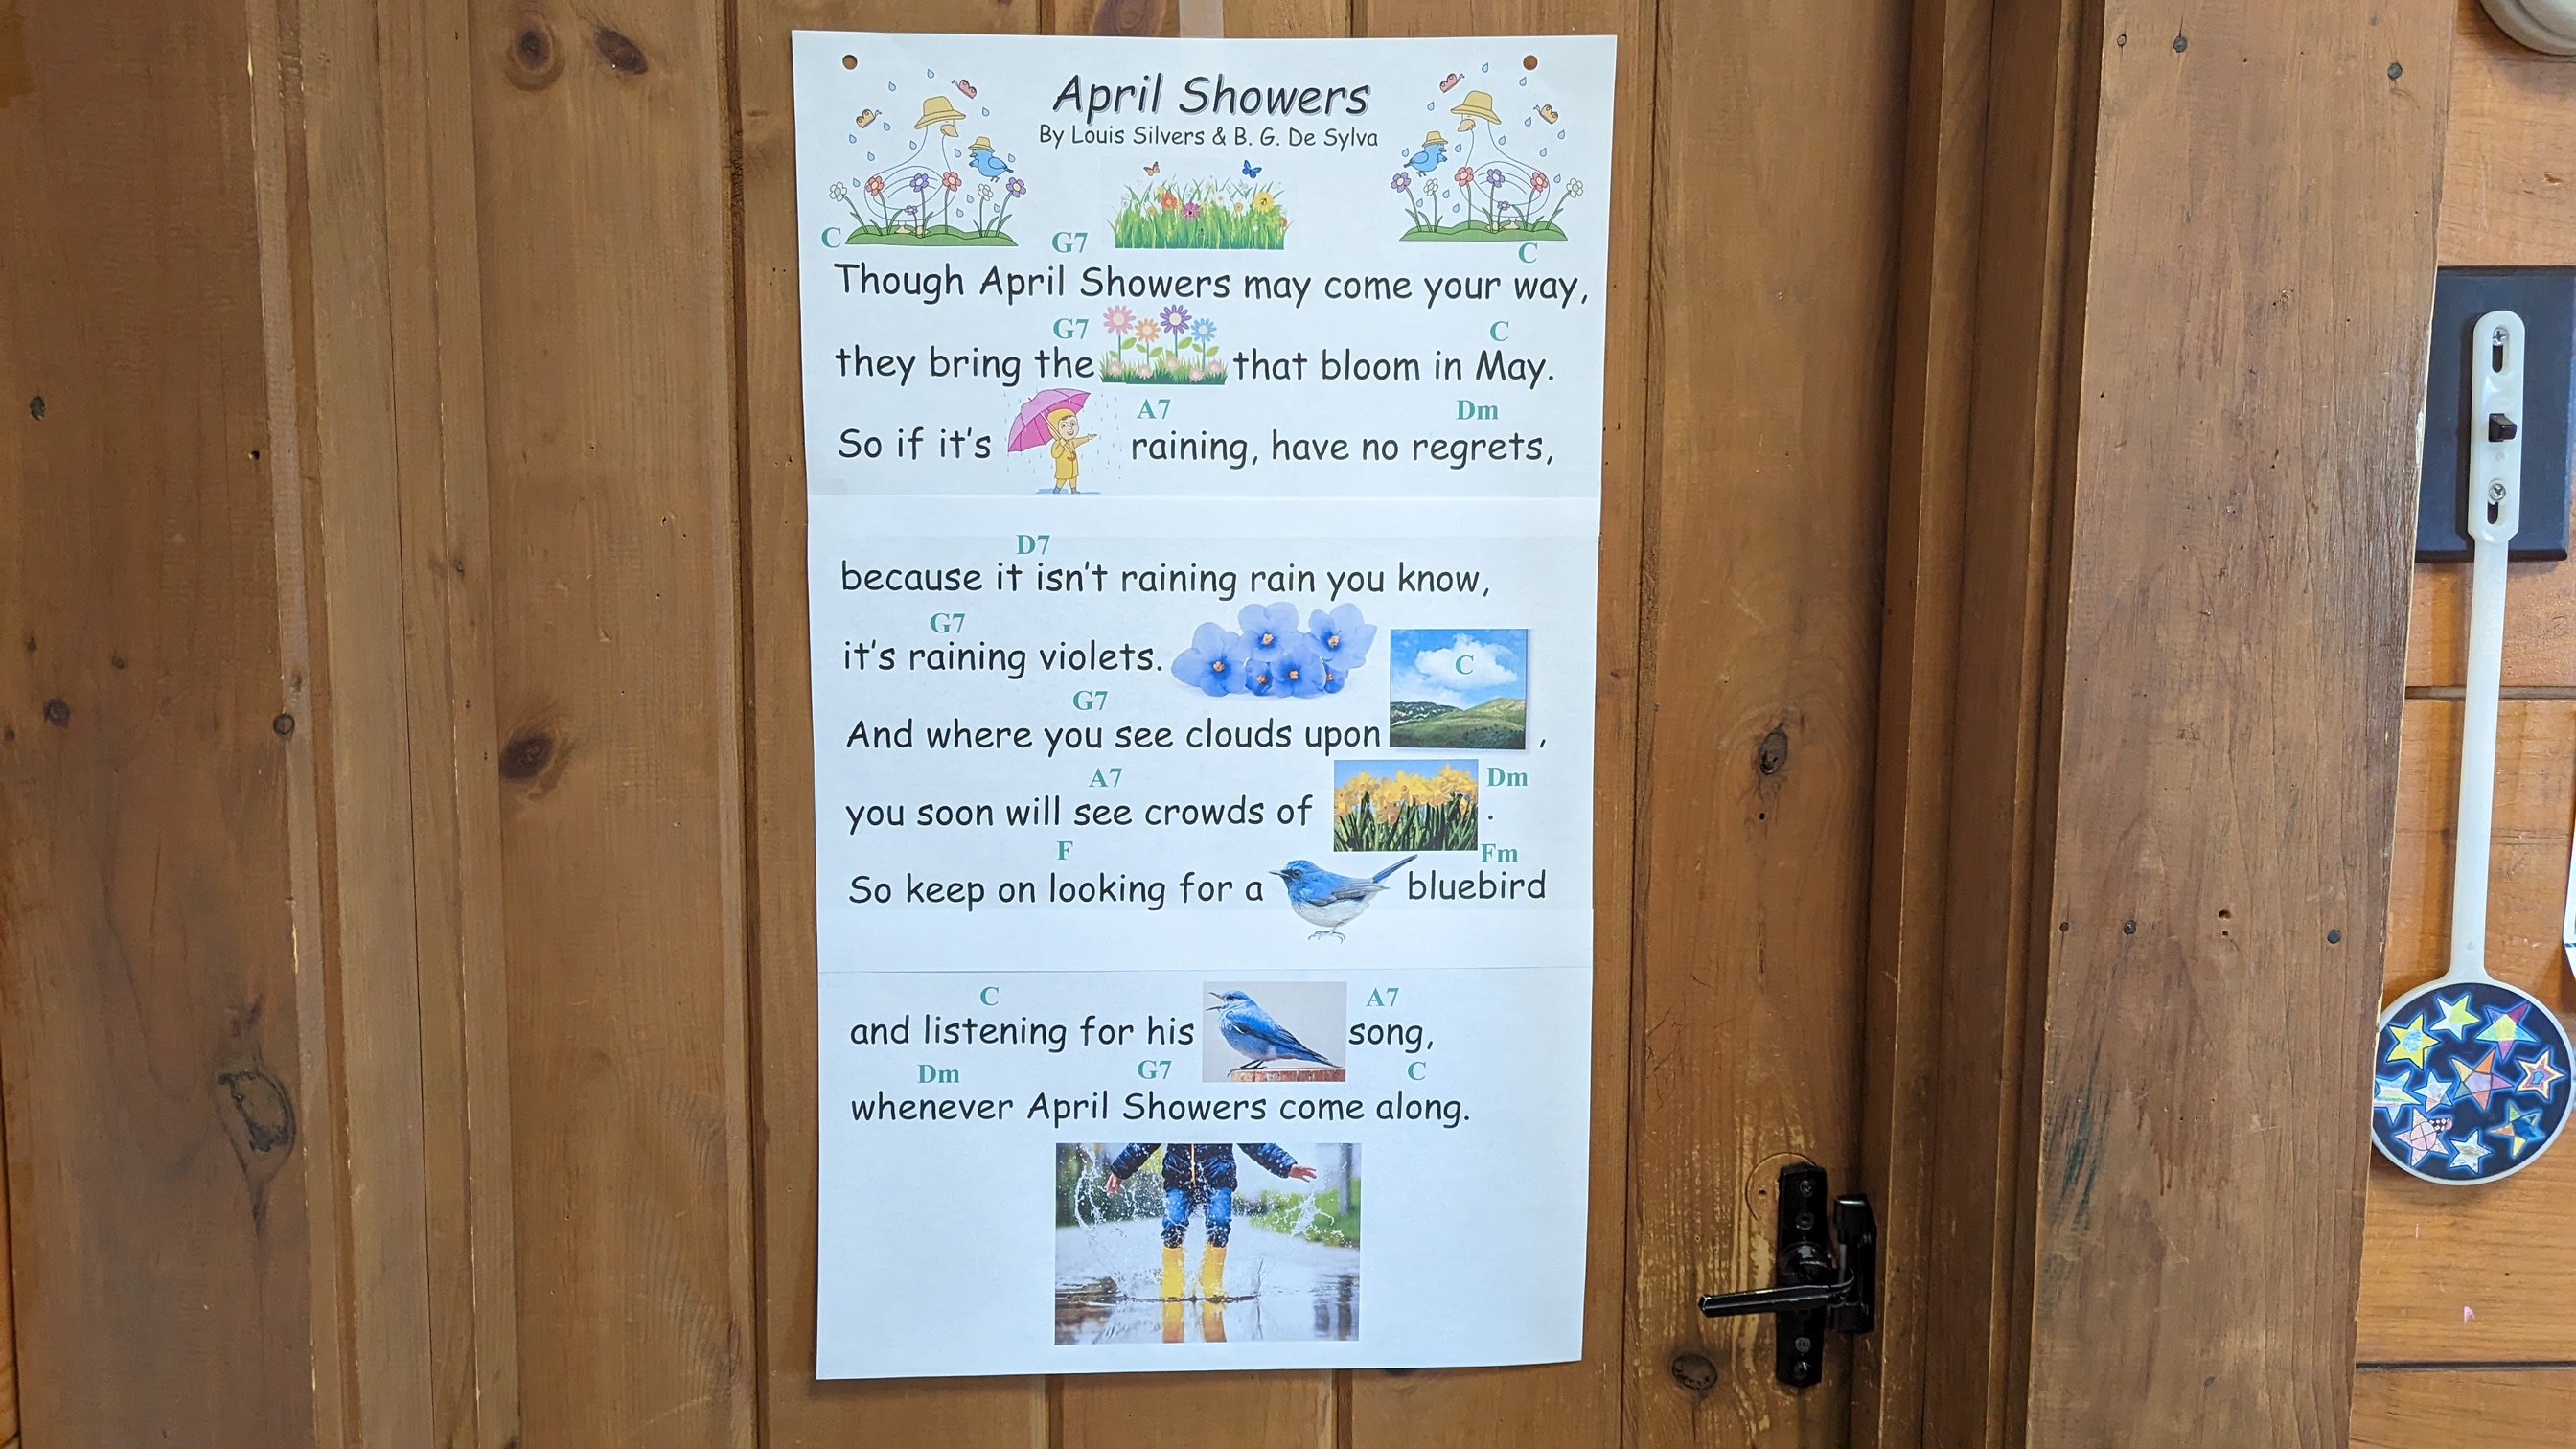 April Showers
By Louis Silvers & B. G. De Sylva
C G7 C
Though April Showers may come your way,
G7 C
they bring the that bloom in May.
A7 Dm
So if it's raining, have no regrets,
D7
because it isn't raining rain you know,
G7
it's raining violets.
G7 C
And where you see clouds upon ,
A7 Dm
you soon will see crowds of .
F Fm
So keep on looking for a bluebird
C A7
and listening for his song,
Dm G7 C
whenever April Showers come along.